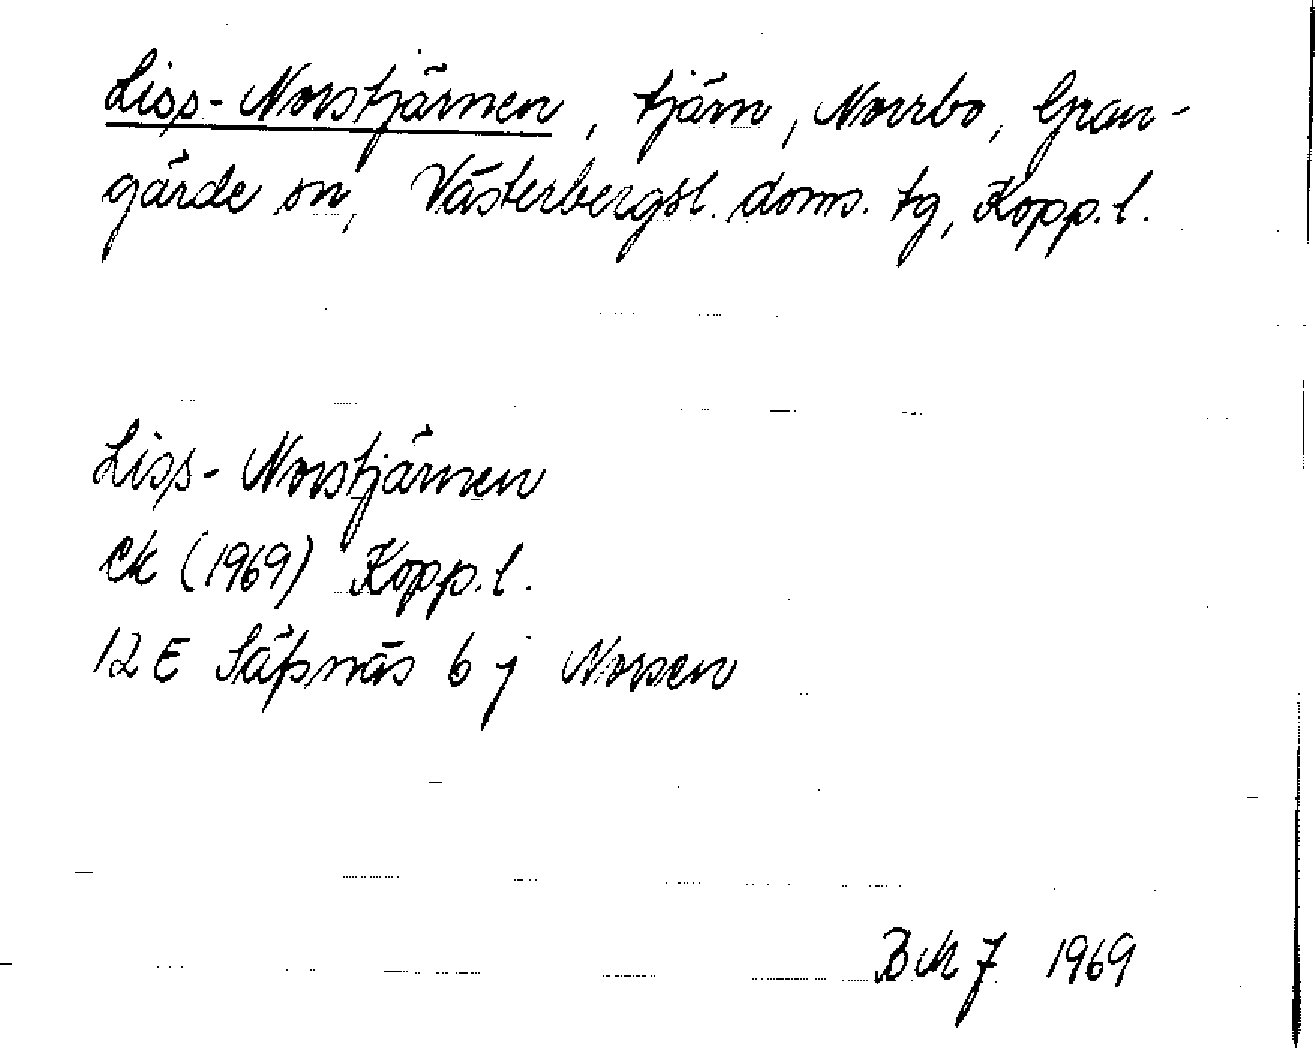 Liss-Norstjärnen, tjärn, Norrbo, Gran-
gärde sn, Västerbergsl. doms. tg, Kopp. l.
Liss-Norstjärnen
ek (1969) Kopp. l.
12 E Säfsnäs 6 j Norsen
1969